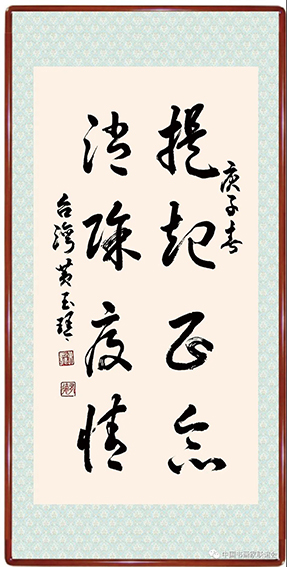 庚子春
提起正念
消除疫情
台灣黃玉
中国书画家联谊会